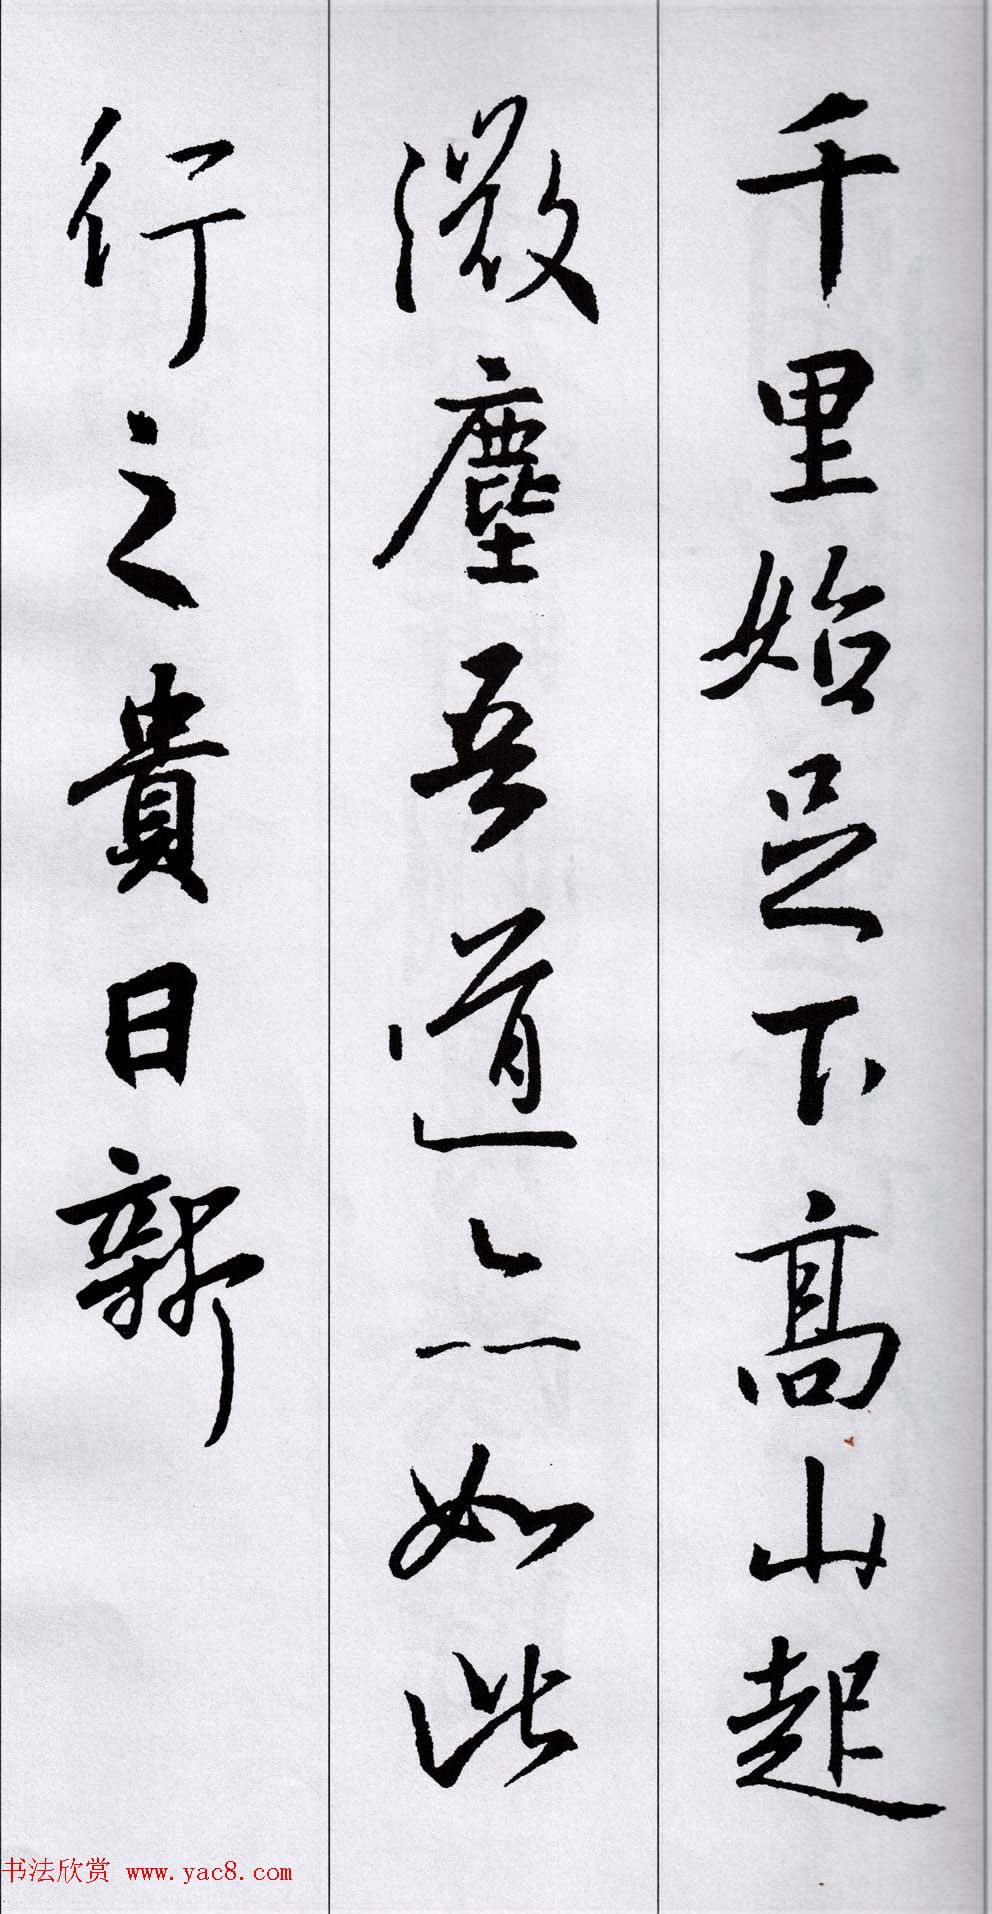 千里始足下高山起
微塵吾道亦如此
行之貴日新
书法欣赏 www.yac8.com